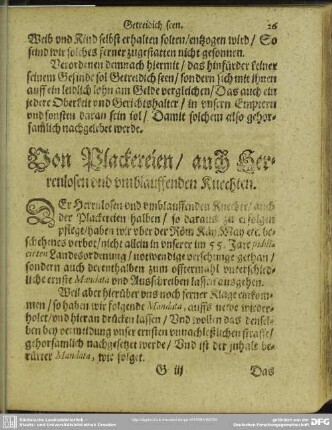 Getreidich seen. 26
Weib vnd Kind selbst erhalten solten/entzogen wird/ So
seind wir solches ferner zugestatten nicht gesonnen.
Verordenen demnach hiermit/ das hinfürder keiner
seinem Gesinde sol Getreidich seen/ sondern sich mit ihnen
auff ein leidlich lohn am Gelde vergleichen/ Das auch ein
jedere Oberkeit vnd Gerichtshalter/ in vnsern Emptern
vnd sonsten daran sein sol/ Damit solchem also gehor-
samlich nachgelebet werde.
Von Plackereien/ auch Her-
renlosen vnd vmblauffenden Knechten.
DEr Herrnlosen vnd vmblauffenden Knechte/ auch
der Plackereien halben/ so daraus zu erfolgen
pflegt/ haben wir vber der Röm. Kay. May. etc. be-
schehenes verbot/ nicht allein in vnserer im 55. Jare publi-
cirten Landesordenung/ notwendige versehunge gethan/
sondern auch derenthalben zum offtermahl vnterschied-
liche ernste Mandata vnd Ausschreiben lassen ausgehen.
Weil aber hierüber vns noch ferner Klage einkom-
men/ so haben wir folgende Mandata, auffs newe wieder-
holet/ vnd hieran drücken lassen/ Vnd wollen das densel-
ben bey vermeidung vnser ernsten vnnachleßlichen straffe/
gehorsamlich nachgesetzet werde/ Vnd ist der inhalt be-
rürter Mandata, wie folget.
G iij Das